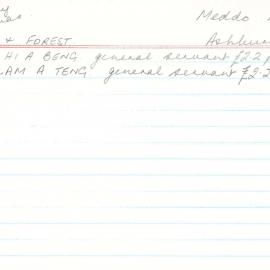 Meddo
& FOREST Ashbur
HI A BENG general servant £22 p
AM A TENG general servant £9.2